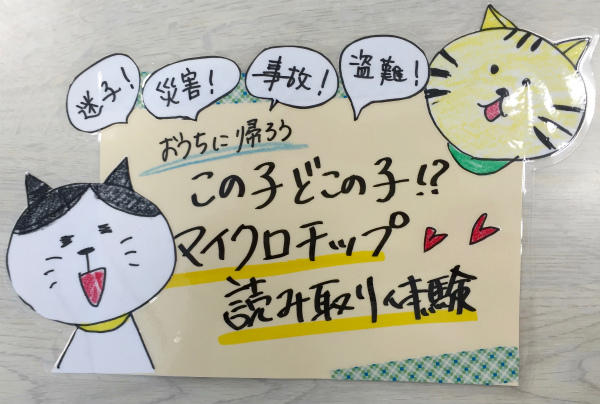 迷子!
災害!
事故!
盗難!
おうちに帰ろう
この子どこの子!?
マイクロチップ
読み取り体験